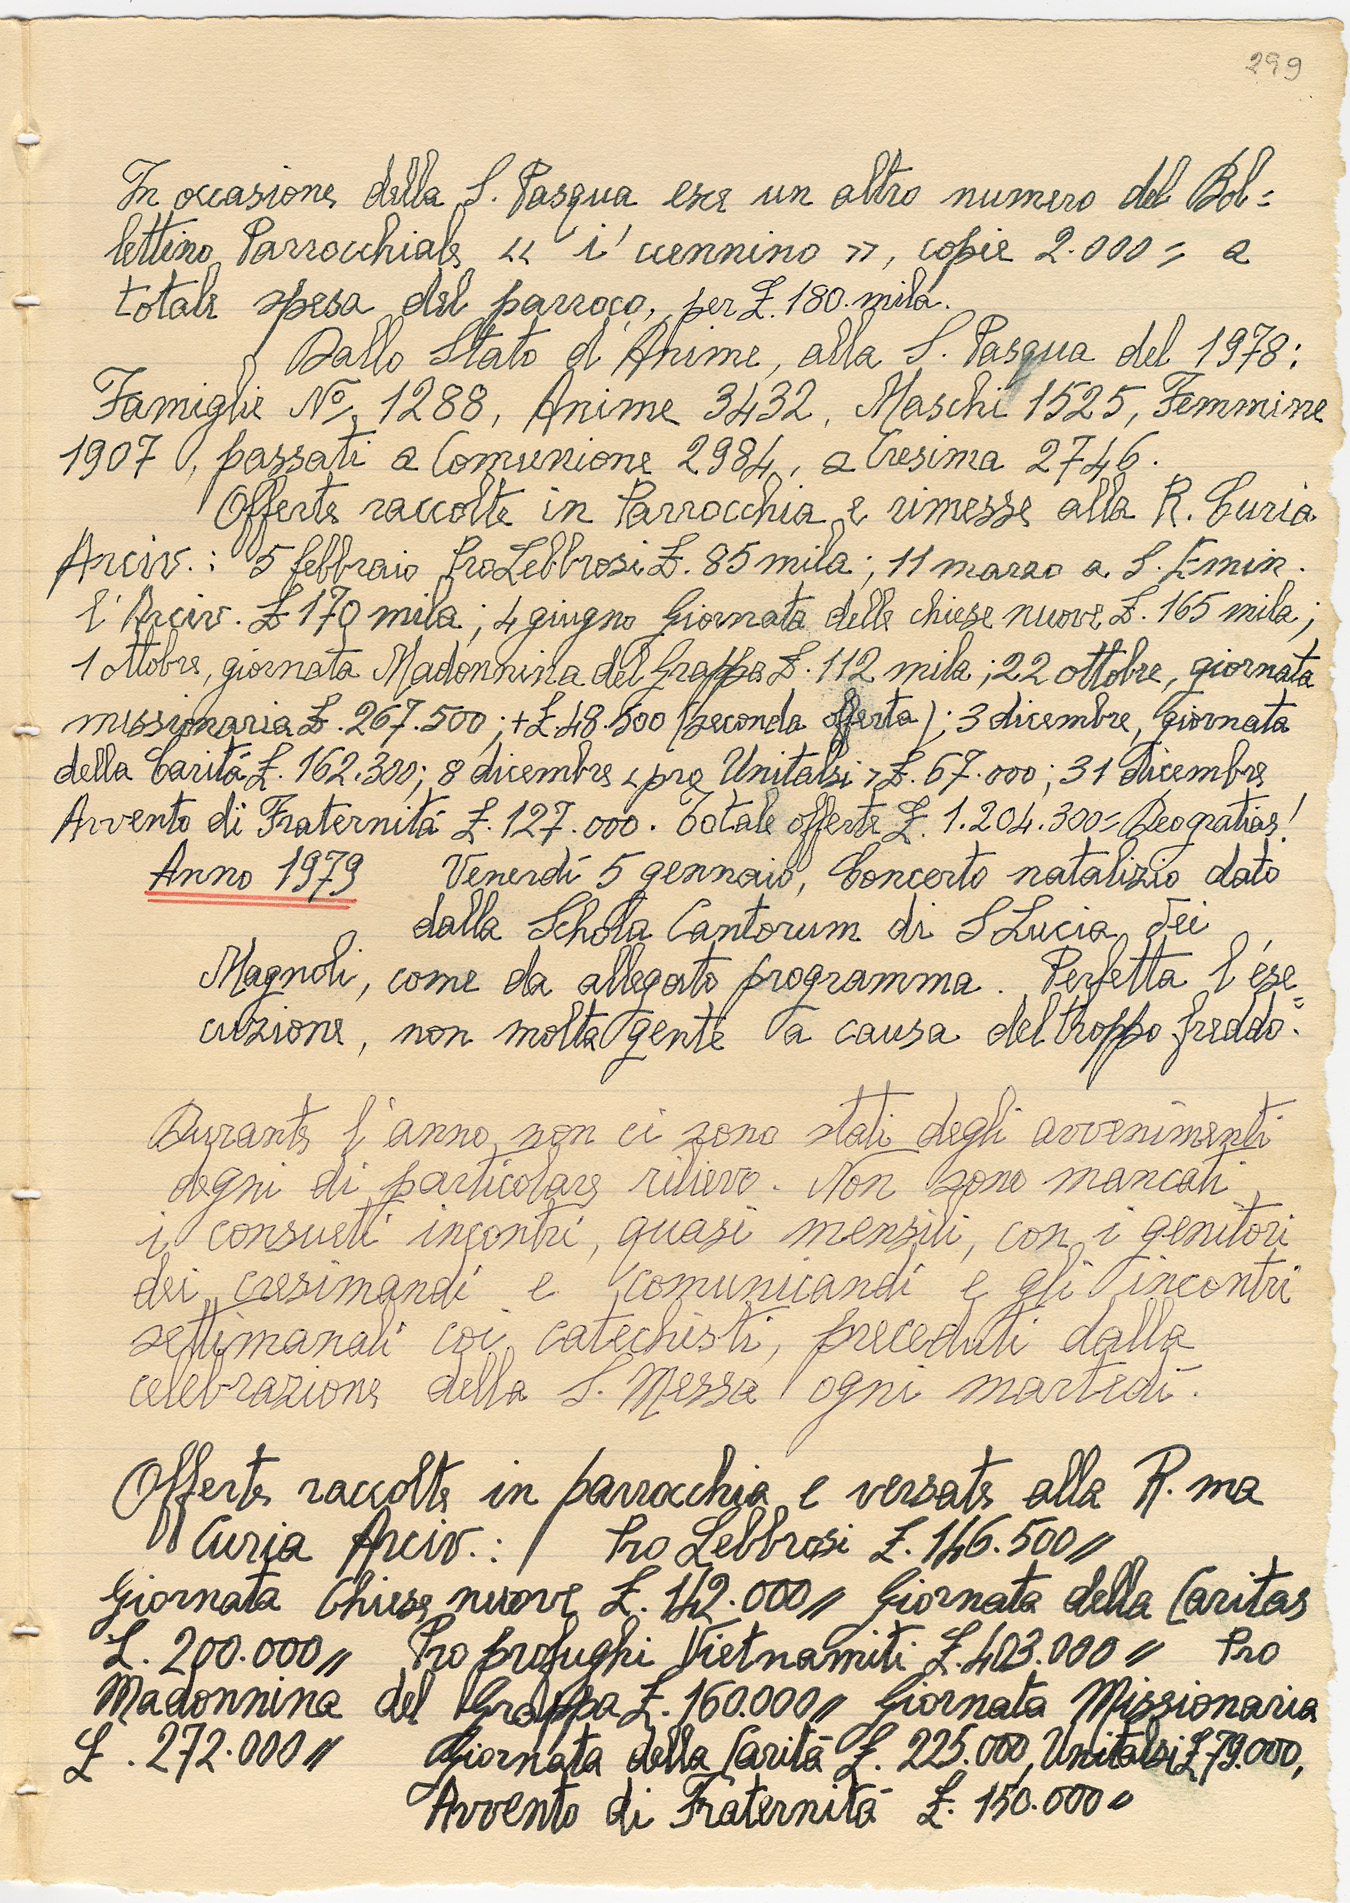 299
In occasione della S. Pasqua esce un altro numero del Bol=
lettino Parrocchiale « i' cennino », copie 2.000= a
totale spesa del parroco, per £. 180.mila.
Dallo Stato d'Anime, alla S. Pasqua del 1978:
Famiglie No. 1288, Anime 3432, Maschi 1525, Femmine
1907, passati a Comunione 2984, a Cresima 2746.
Offerte raccolte in Parrocchia e rimesse alla R. Curia
Arciv.: 5 febbraio Pro Lebbrosi £. 85 mila; 11 marzo a S. Emin.
l'Arciv. £ 170 mila; 4 giugno Giornata delle chiese nuove £. 165 mila;
1 ottobre, giornata Madonnina del Grappa £. 112 mila; 22 ottobre, giornata
missionaria £. 267.500; + £. 48.500 (seconda offerta); 3 dicembre, giornata
della Carità £. 162.300; 8 dicembre < pro Unitalsi > £. 67.000; 31 dicembre
Avvento di Fraternità £. 127.000. Totale offerte £. 1.204.300= Deogratias!
Anno 1979 Venerdì 5 gennaio, Concerto natalizio dato
dalla Schola Cantorum di S Lucia dei
Magnoli, come da allegato programma. Perfetta l'ese=
cuzione, non molta gente a causa del troppo freddo.
Durante l'anno non ci sono stati degli avvenimenti
degni di particolare rilievo. Non sono mancati
i consueti incontri, quasi mensili, con i genitori
dei cresimandi e comunicandi e gli incontri
settimanali coi catechisti, preceduti dalla
celebrazione della S. Messa ogni martedì.
Offerte raccolte in parrocchia e versate alla R.ma
Curia Arciv.: Pro Lebbrosi £. 146.500 //
Giornata Chiese nuove £. 142.000 // Giornata della Caritas
£. 200.000 // Pro profughi Vietnamiti £. 403.000 // Pro
Madonnina del Grappa £. 160.000 // Giornata Missionaria
£. 272.000 // Giornata della Carità £. 225.000, Unitalsi £ 79.000,
Avvento di Fraternità £. 150.000 //